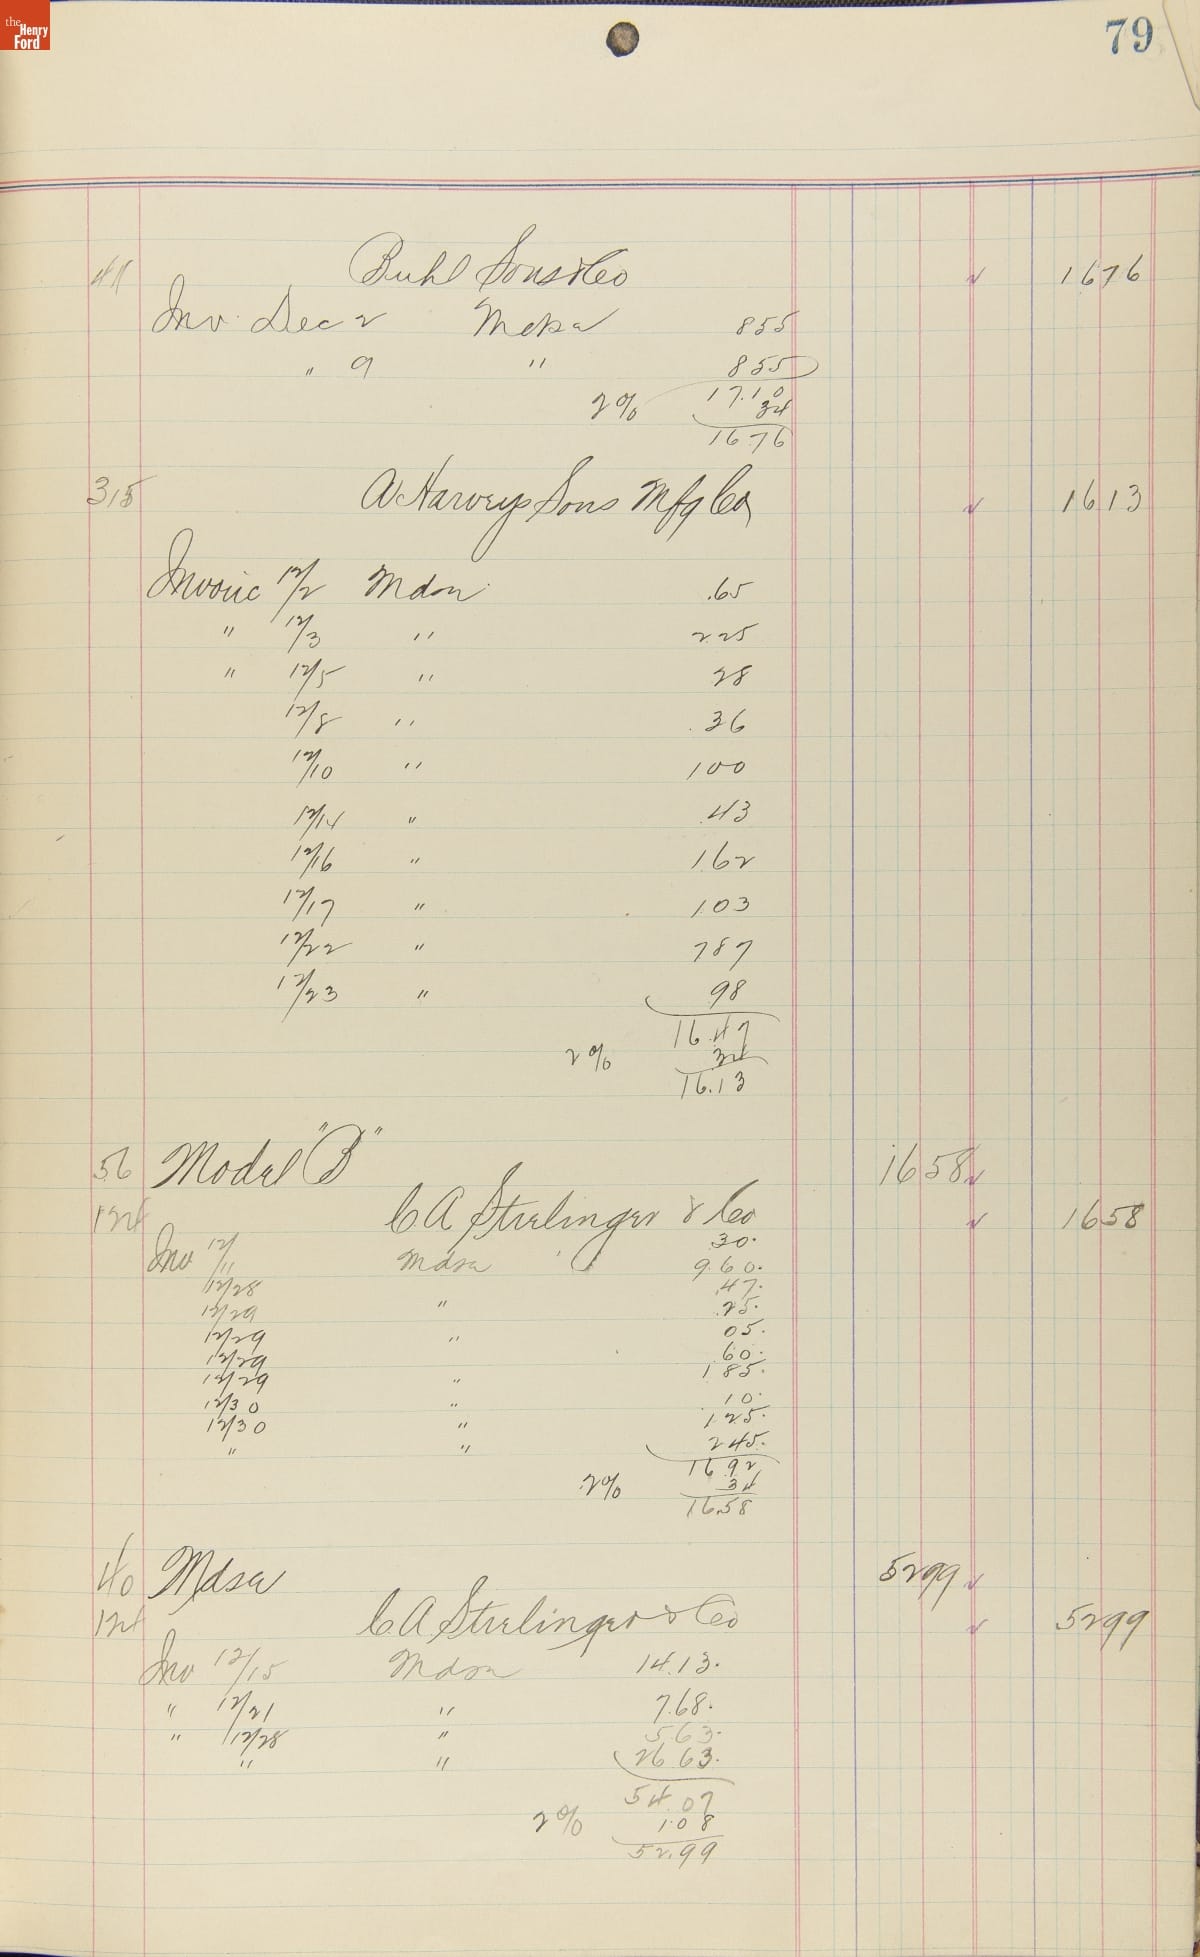 the Henry Ford
79
41 Buhl Sons & Co 1676
Inv. Dec 2 Mdse 855
" 9 " 855
17.10
2% 34
1676
315 A Harveys Sons Mfg Co 1613
Invoice 12/2 Mdse .65
" 12/3 " 2.25
" 12/5 " 28
12/8 " .36
12/10 " 100
12/14 " .43
12/16 " 162
12/17 " 1.03
12/22 " 787
12/23 " 98
16.47
2% 34
16.13
56 Model "B" 1658
124 C A Strelinger & Co 1658
30.
Inv 12/11 Mdse 960.
12/28 .47.
12/29 " .25.
12/29 " 05.
12/29 .60.
12/29 " 1 85.
12/30 " 10.
12/30 " 1.25.
" " 245.
1692
2% 34
16.58
40 Mdse 5299
124 C A Strelinger & Co 5299
Inv 12/15 Mdse 14.13.
" 12/21 " 7.68.
" 12/28 " 563.
" " 2663.
54.07
2% 1.08
52.99